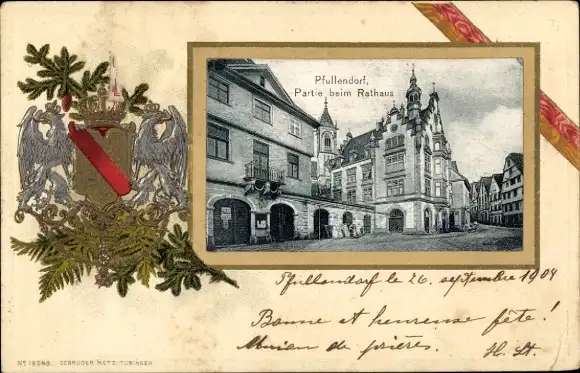 Pfullendorf,
Partie beim Rathaus
Pfullendorf le 26. septembre 1904
Bonne et heureuse fête!
de prières. H. St.
No 19248 GEBRÜDER METZ-TÜBINGEN